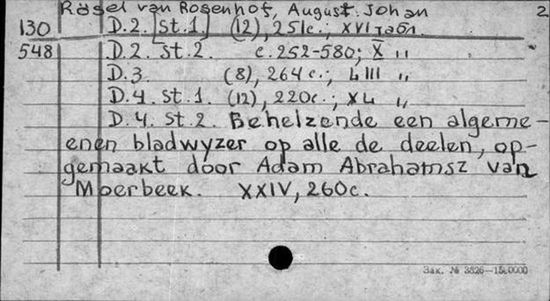 Rösel van Rosenhof, August Johan 2
130 D.2. St.1 (12), 251c., XVI табл.
548 D.2 st.2. c.252-580; X "
D.3. (8), 264c.; LIII "
D.4. St.1. (12), 220c.; XL "
D.4. St.2. Behelzende een algeme-
enen bladwyzer op alle de deelen, op-
gemaakt door Adam Abrahamsz van
Moerbeek. XXIV, 260c.
Зак. № 3826—150000